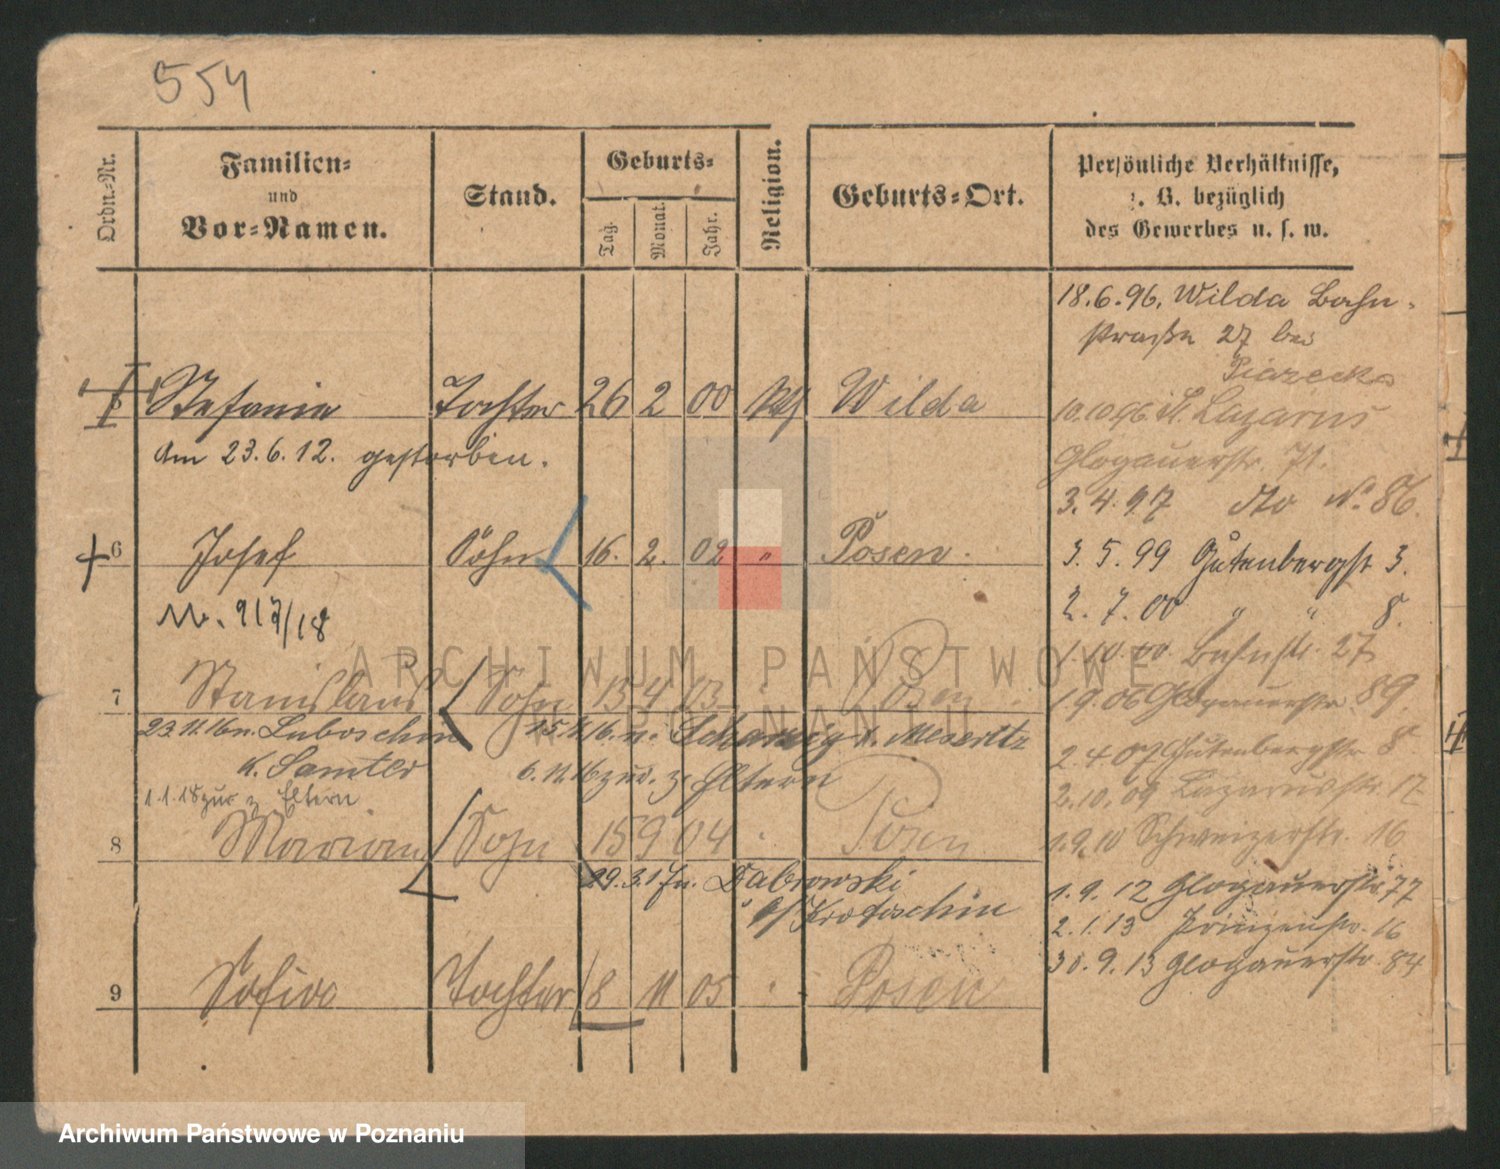 554
Ordn.-Nr.
Familien-
und
Vor-Namen.
Stand.
Geburts-
Tag.
Monat.
Jahr.
Religion.
Geburts-Ort.
Persönliche Verhältnisse,
z. B. bezüglich
des Gewerbes u. s. w.
18.6.96. Wilda Bahn-
straße 27 bei
10.10.96 St. Lazarus
Glogauerstr. 71.
3.4.97 dto No. 86.
3.5.99 Gutenbergst 3.
2.7.00 " " 8.
1.10.00 Bahnstr. 27
1.9.06 Glogauerstr. 89.
2.4.07 Gutenbergstr 8
2.10.09 Lazarusstr. 17
1.9.10 Schweizerstr. 16
1.9.12 Glogauerstr 77
2.1.13 Prinzenstr. 16
30.9.13 Glogauerstr. 84
Stefania Tochter 26 2 00 kth Wilda
Am 23.6.12. gestorben.
6 Josef Sohn 16. 2. 02 " Posen.
917/18
7 Stanislaus Sohn 13 4 03 " Posen
23.11.16 n. Luboschin 15.11.16. n. Meseritz
k. Samter 6.11.16 zur. z. Eltern
1.1.18 zur z Eltern.
8 Marian Sohn 15 9 04 " Posen
29.3.17 n. Dabrowski
b/ Krotoschin
9 Sofia Tochter 8 11 05 " Posen
ARCHIWUM PAŃSTWOWE
W POZNANIU
Archiwum Państwowe w Poznaniu